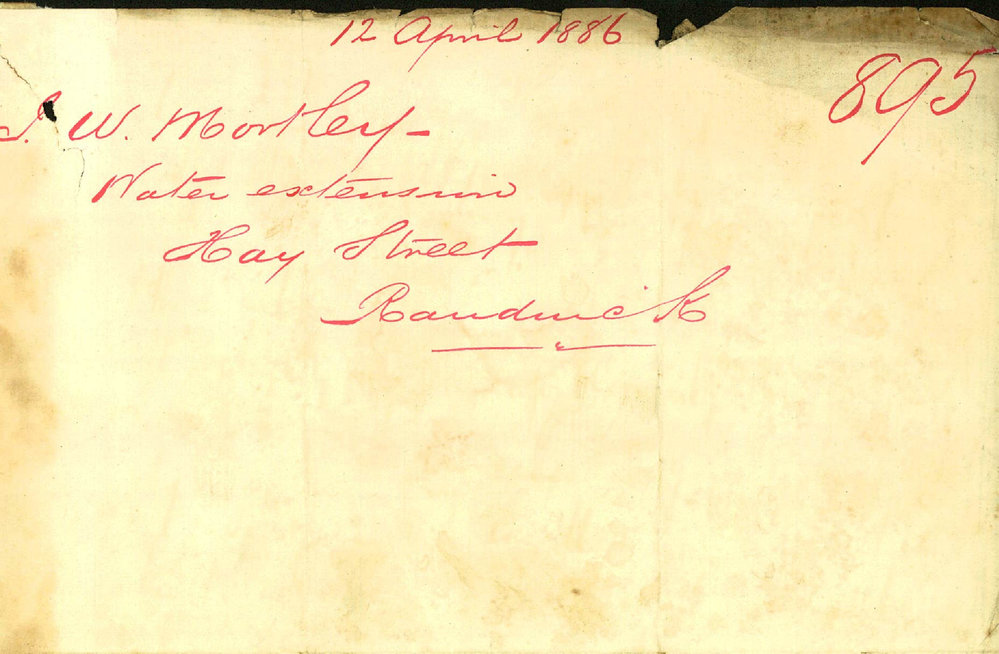 12 April 1886
895
J. W. Mortley
Water extension
Hay Street
Randwick